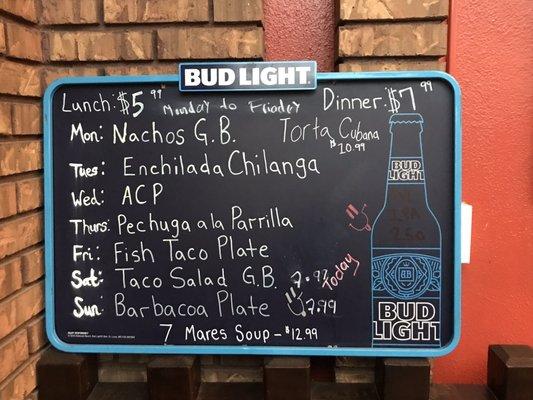 BUD LIGHT
Lunch: $5.99 Monday to Friday Dinner: $7.99
Mon: Nachos G.B. Torta Cubana
$10.99
Tues: Enchilada Chilanga
Wed: ACP
Thurs: Pechuga a la Parrilla
Fri: Fish Taco Plate
Sat: Taco Salad G.B. 7.99 Today
Sun: Barbacoa Plate 7.99
7 Mares Soup - $12.99
BUD
LIGHT
IPA
2.50
BUD
LIGHT